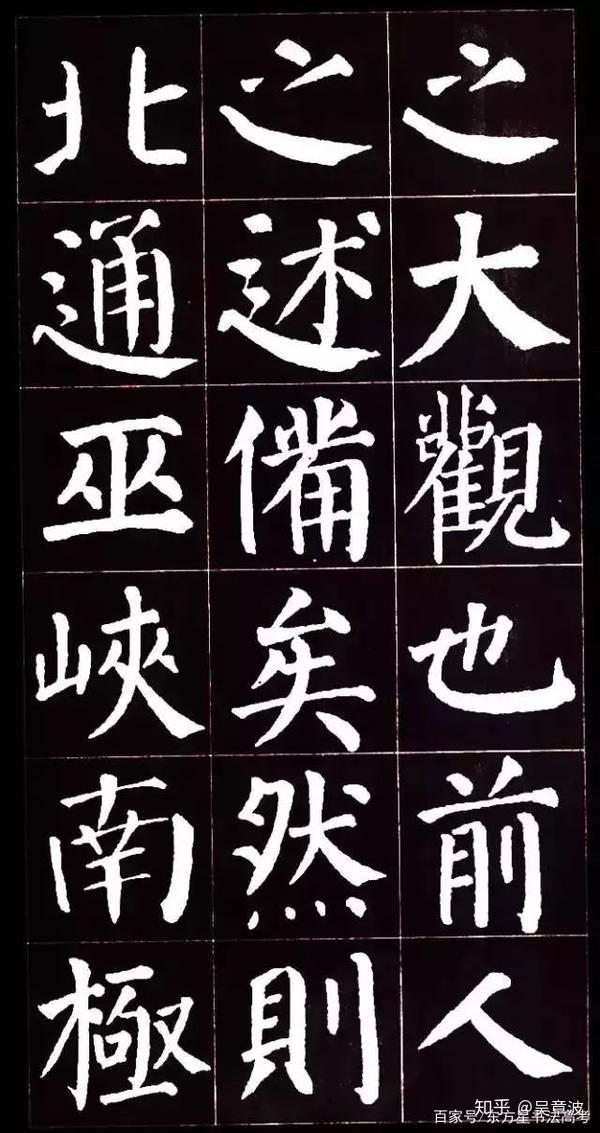 之大觀也前人
之述備矣然則
北通巫峽南極
知乎 @吴章波
百家号/东方星书法高考